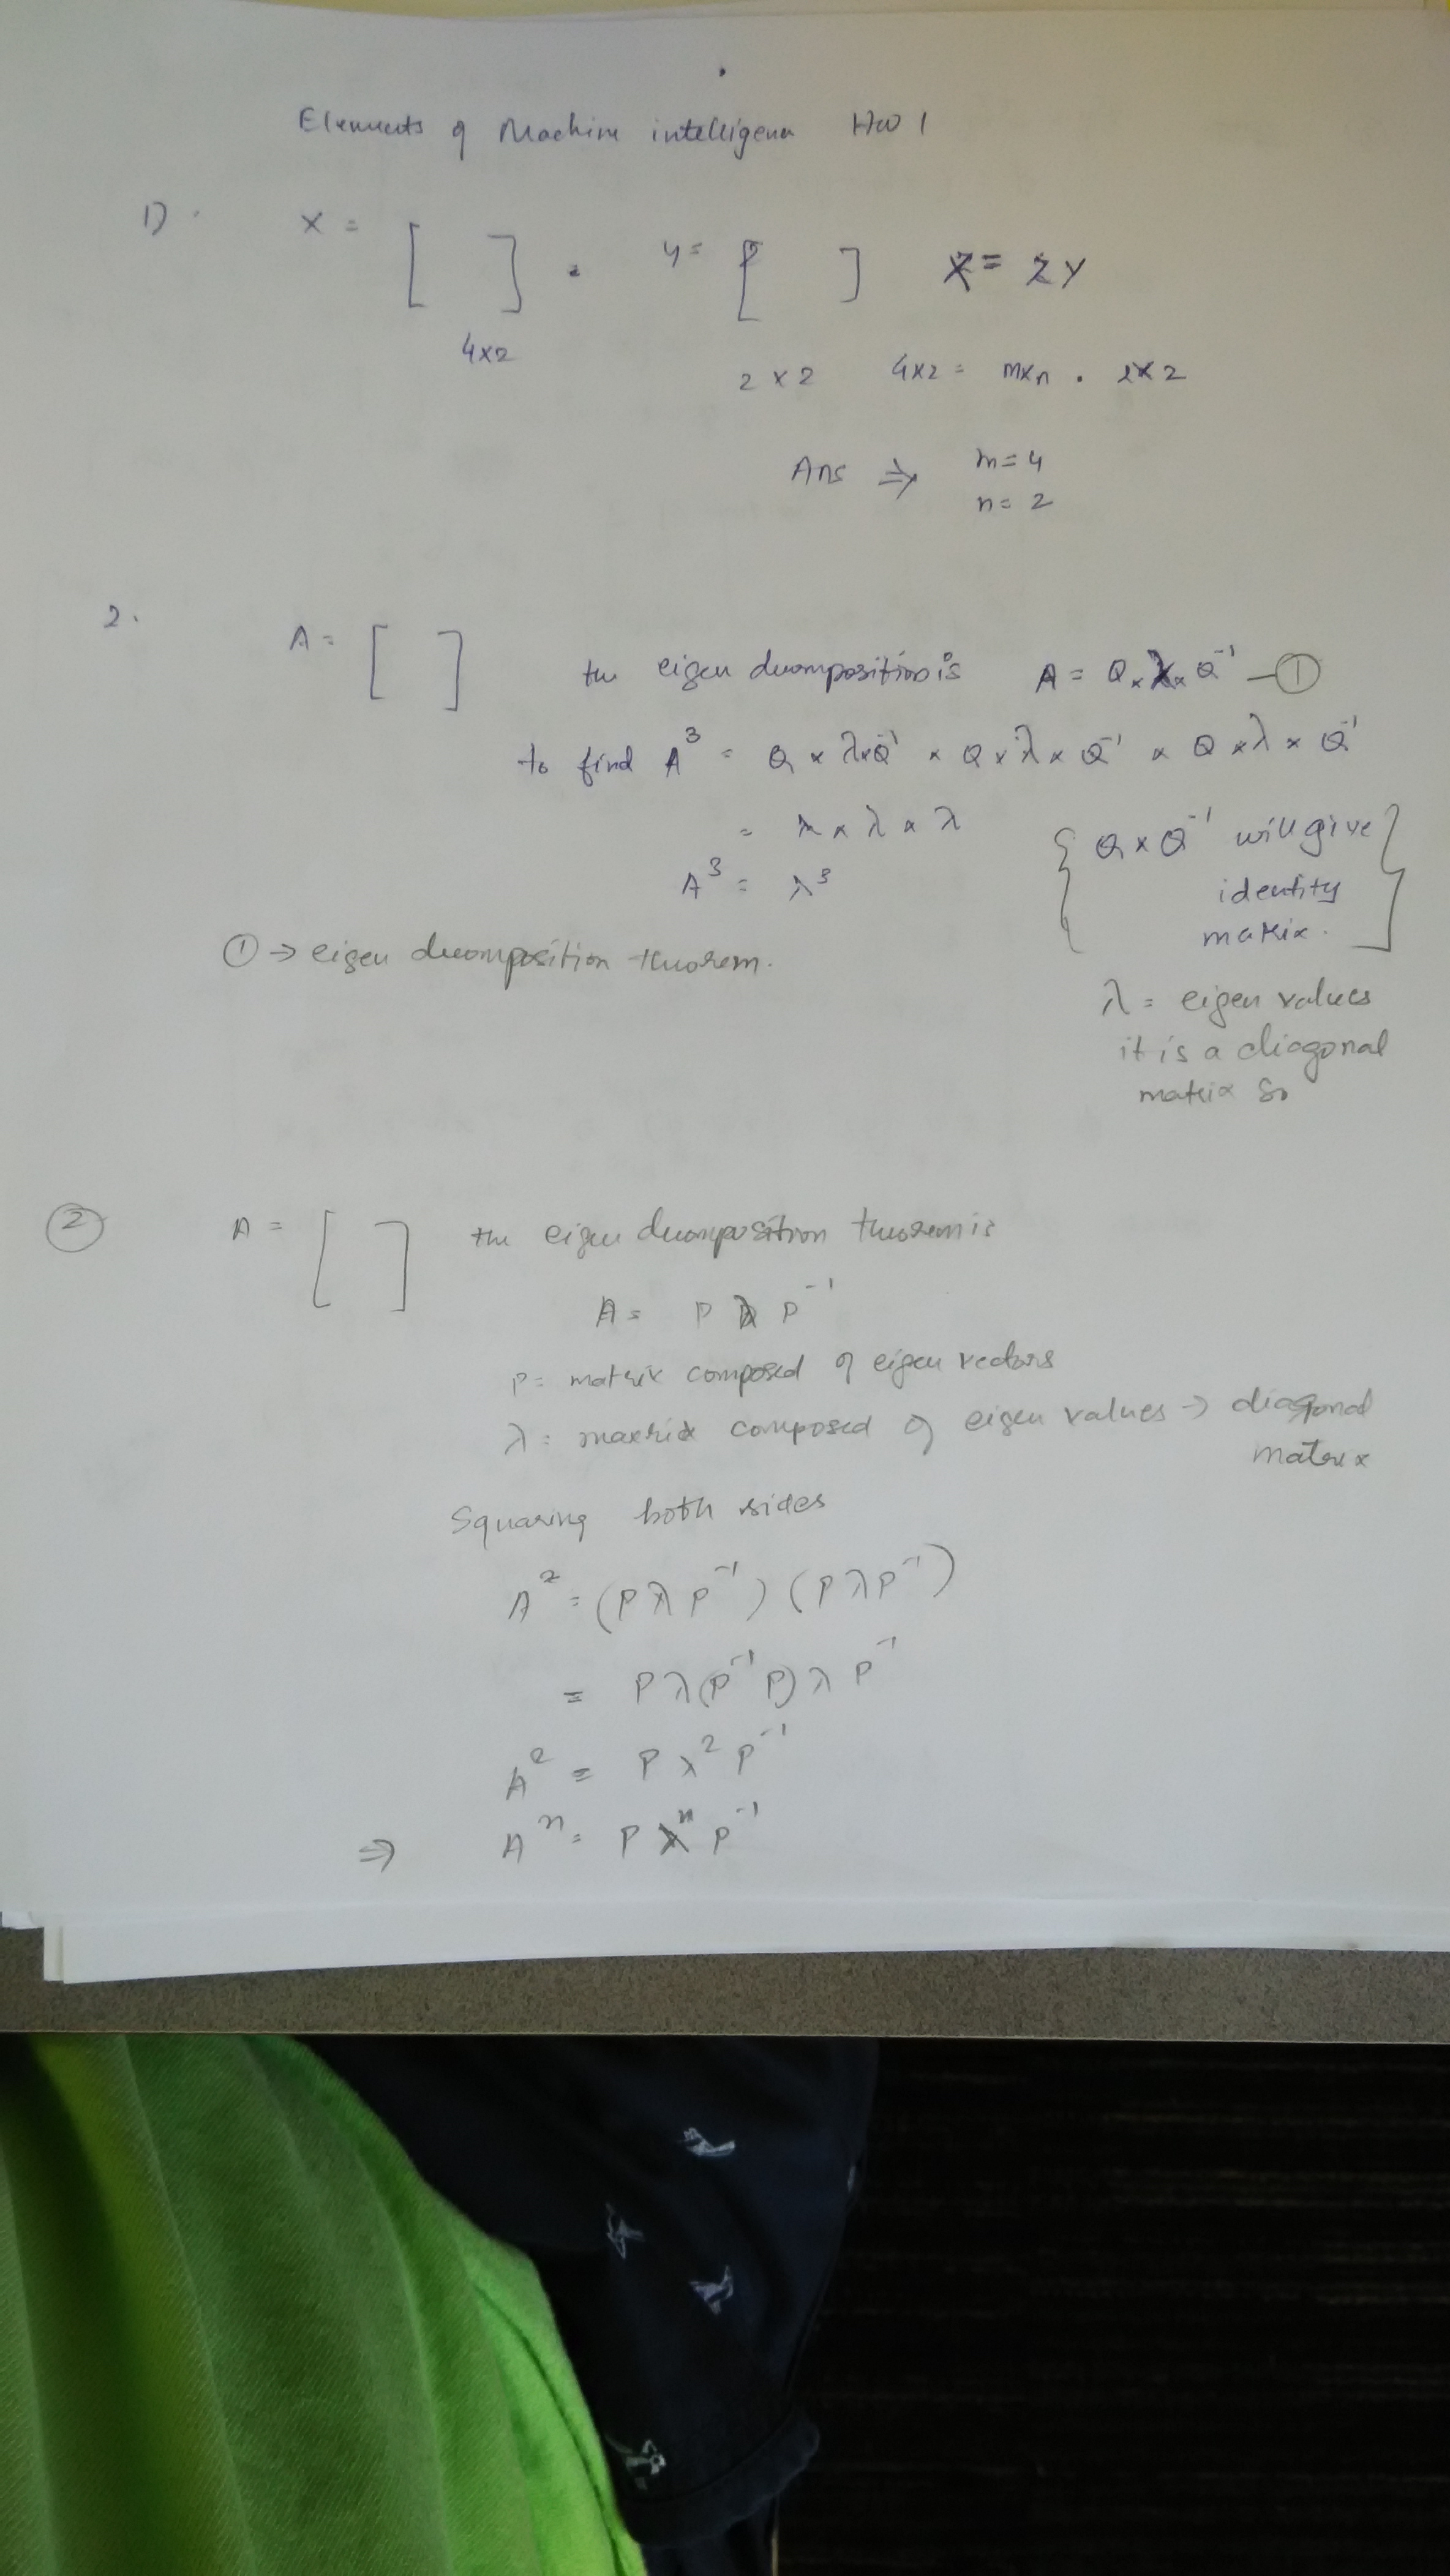 Elements of Machine intelligence HW 1
1) X = [ ] 4x2 . y = [ ] 2 x 2 X = ZY
4x2 = mxn . 2x2
Ans ⇒ m = 4
n = 2
2. A = [ ] the eigen decomposition is A = Q x λ x Q⁻¹ — ①
to find A³ = Q x λ x Q⁻¹ x Q x λ x Q⁻¹ x Q x λ x Q⁻¹
= λ x λ x λ
A³ = λ³
{ Q x Q⁻¹ will give
identity
matrix. }
① → eigen decomposition theorem.
λ = eigen values
it is a diagonal
matrix so
② A = [ ] the eigen decomposition theorem is
A = P λ P⁻¹
P = matrix composed of eigen vectors
λ = matrix composed of eigen values → diagonal
matrix
Squaring both sides
A² = (P λ P⁻¹) (P λ P⁻¹)
= P λ (P⁻¹ P) λ P⁻¹
A² = P λ² P⁻¹
⇒ Aⁿ = P λⁿ P⁻¹